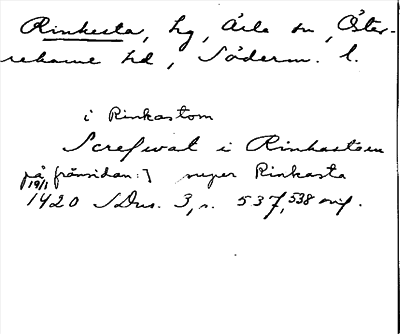 Rinkesta, hg, Ärla sn, Öster-
rekarne hd, Söderm. l.
i Rinkastom
Screfwat i Rinkastom
på frånsidan:] nuper Rinkasta
19/1 1420 SDns. 3, s. 537, 538 orig.